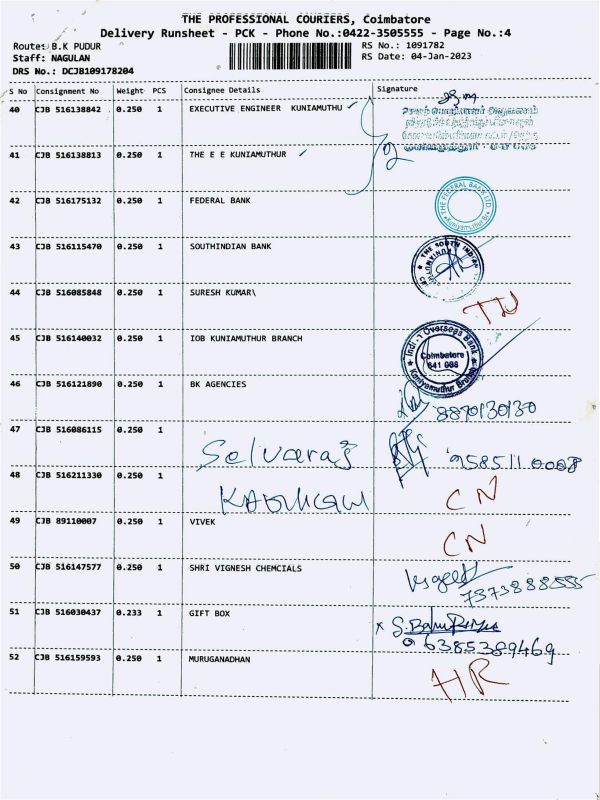 THE PROFESSIONAL COURIERS, Coimbatore
Delivery Runsheet - PCK - Phone No.:0422-3505555 - Page No.:4
Route: B.K PUDUR RS No.: 1091782
Staff: NAGULAN RS Date: 04-Jan-2023
DRS No.: DCJB109178204
S No Consignment No Weight PCS Consignee Details Signature
40 CJB 516138842 0.250 1 EXECUTIVE ENGINEER KUNIAMUTHU
41 CJB 516138813 0.250 1 THE E E KUNIAMUTHUR
42 CJB 516175132 0.250 1 FEDERAL BANK THE FEDERAL BANK LTD Kuniyamuthur Br.
43 CJB 516115470 0.250 1 SOUTHINDIAN BANK THE SOUTH INDIAN
44 CJB 516085848 0.250 1 SURESH KUMAR\ TN
45 CJB 516140032 0.250 1 IOB KUNIAMUTHUR BRANCH Overseas Bank Coimbatore 641 008 Kuniyamuthur
46 CJB 516121890 0.250 1 BK AGENCIES 8870130130
47 CJB 516086115 0.250 1 Selvaraj 9585110008
48 CJB 516211330 0.250 1 CN
49 CJB 89110007 0.250 1 VIVEK CN
50 CJB 516147577 0.250 1 SHRI VIGNESH CHEMCIALS 7373888555
51 CJB 516030437 0.233 1 GIFT BOX 6385389469
52 CJB 516159593 0.250 1 MURUGANADHAN HR